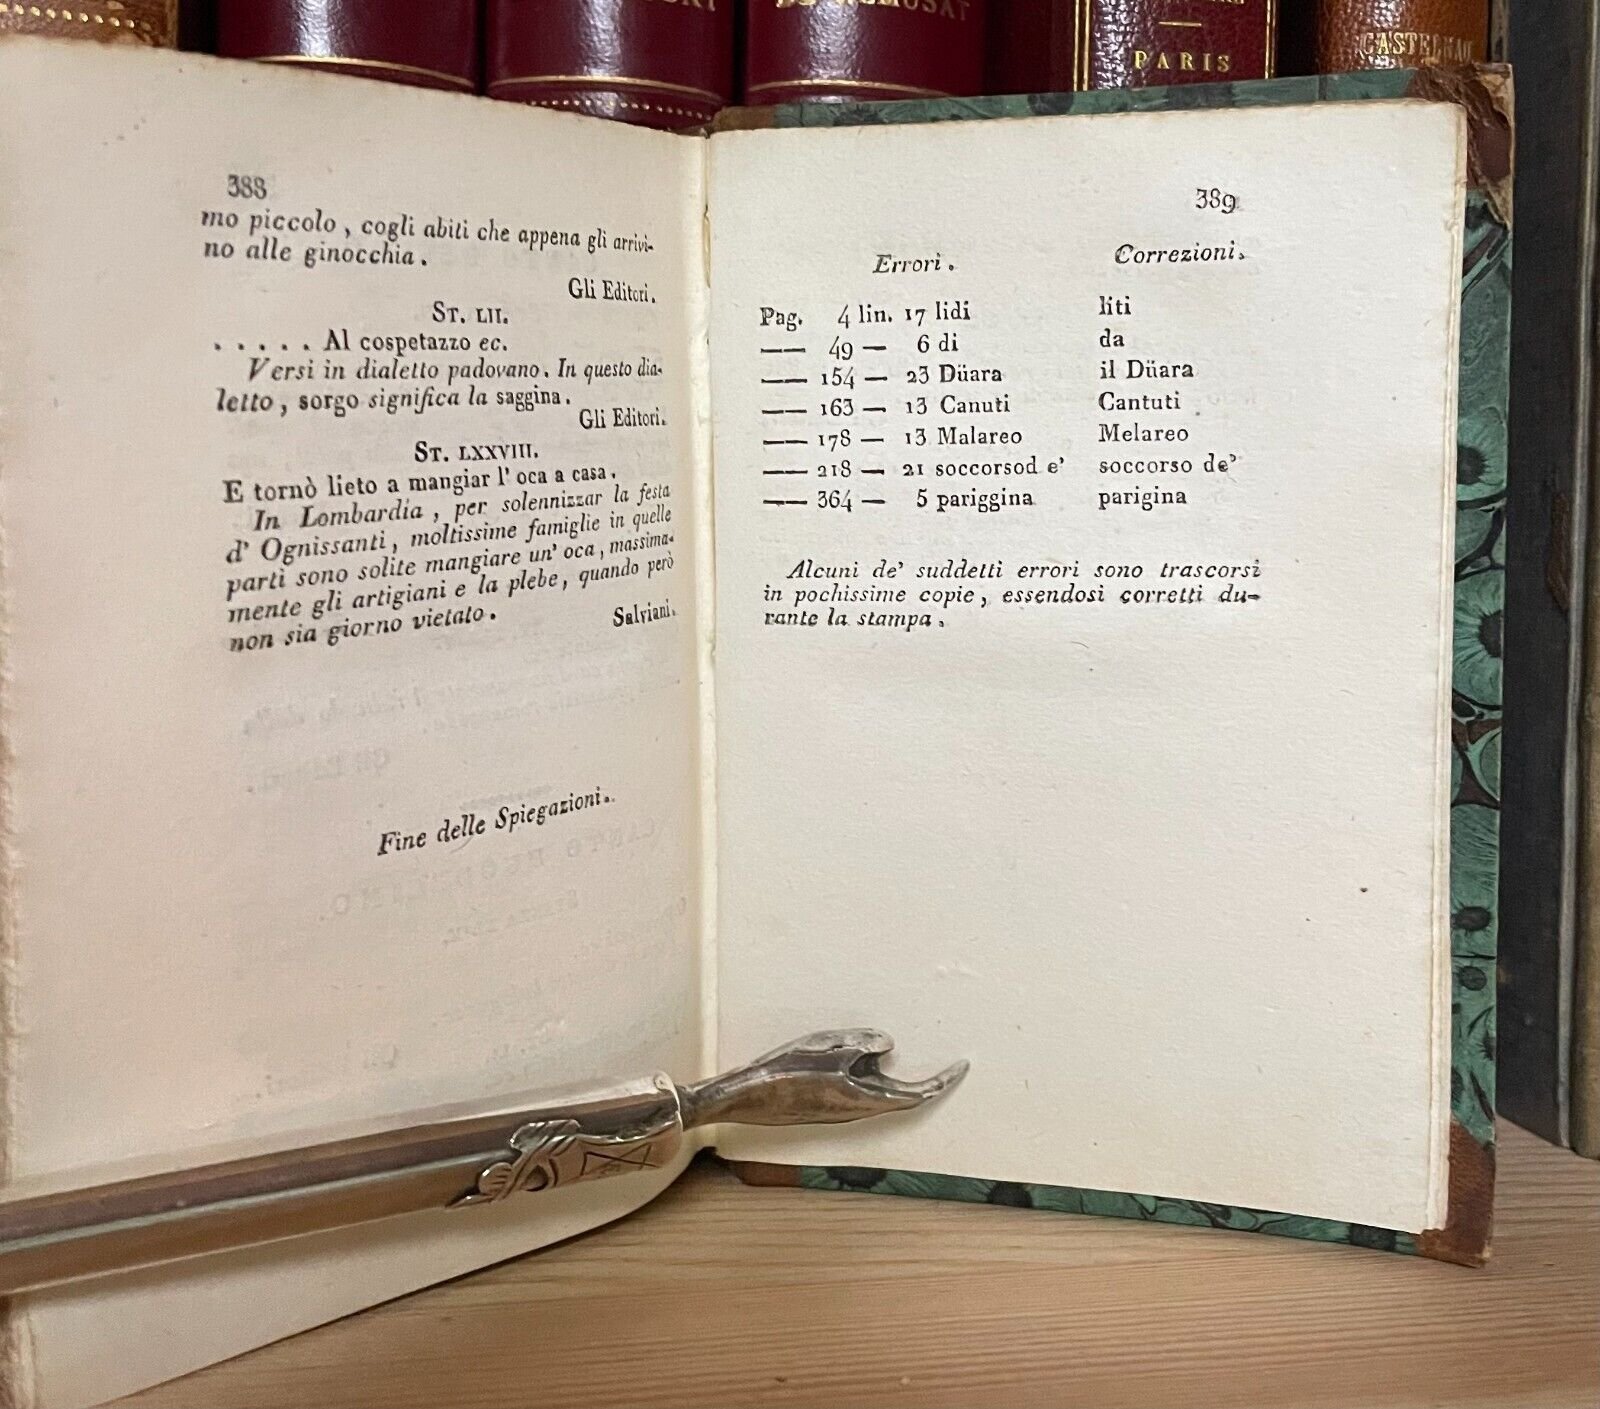 PARIS
CASTELNAU
388
mo piccolo , cogli abiti che appena gli arrivi-
no alle ginocchia .
Gli Editori.
St. LII.
. . . . . Al cospetazzo ec.
Versi in dialetto padovano. In questo dia-
letto , sorgo significa la saggina .
Gli Editori.
St. LXXVIII.
E tornò lieto a mangiar l' oca a casa .
In Lombardia , per solennizzar la festa
d' Ognissanti , moltissime famiglie in quelle
parti sono solite mangiare un' oca , massima-
mente gli artigiani e la plebe , quando però
non sia giorno vietato .
Salviani.
Fine delle Spiegazioni.
389
Errori . Correzioni.
Pag. 4 lin. 17 lidi liti
—— 49 — 6 di da
—— 154 — 23 Düara il Düara
—— 163 — 13 Canuti Cantuti
—— 178 — 13 Malareo Melareo
—— 218 — 21 soccorsod e' soccorso de'
—— 364 — 5 pariggina parigina
Alcuni de' suddetti errori sono trascorsi
in pochissime copie , essendosi corretti du-
rante la stampa .